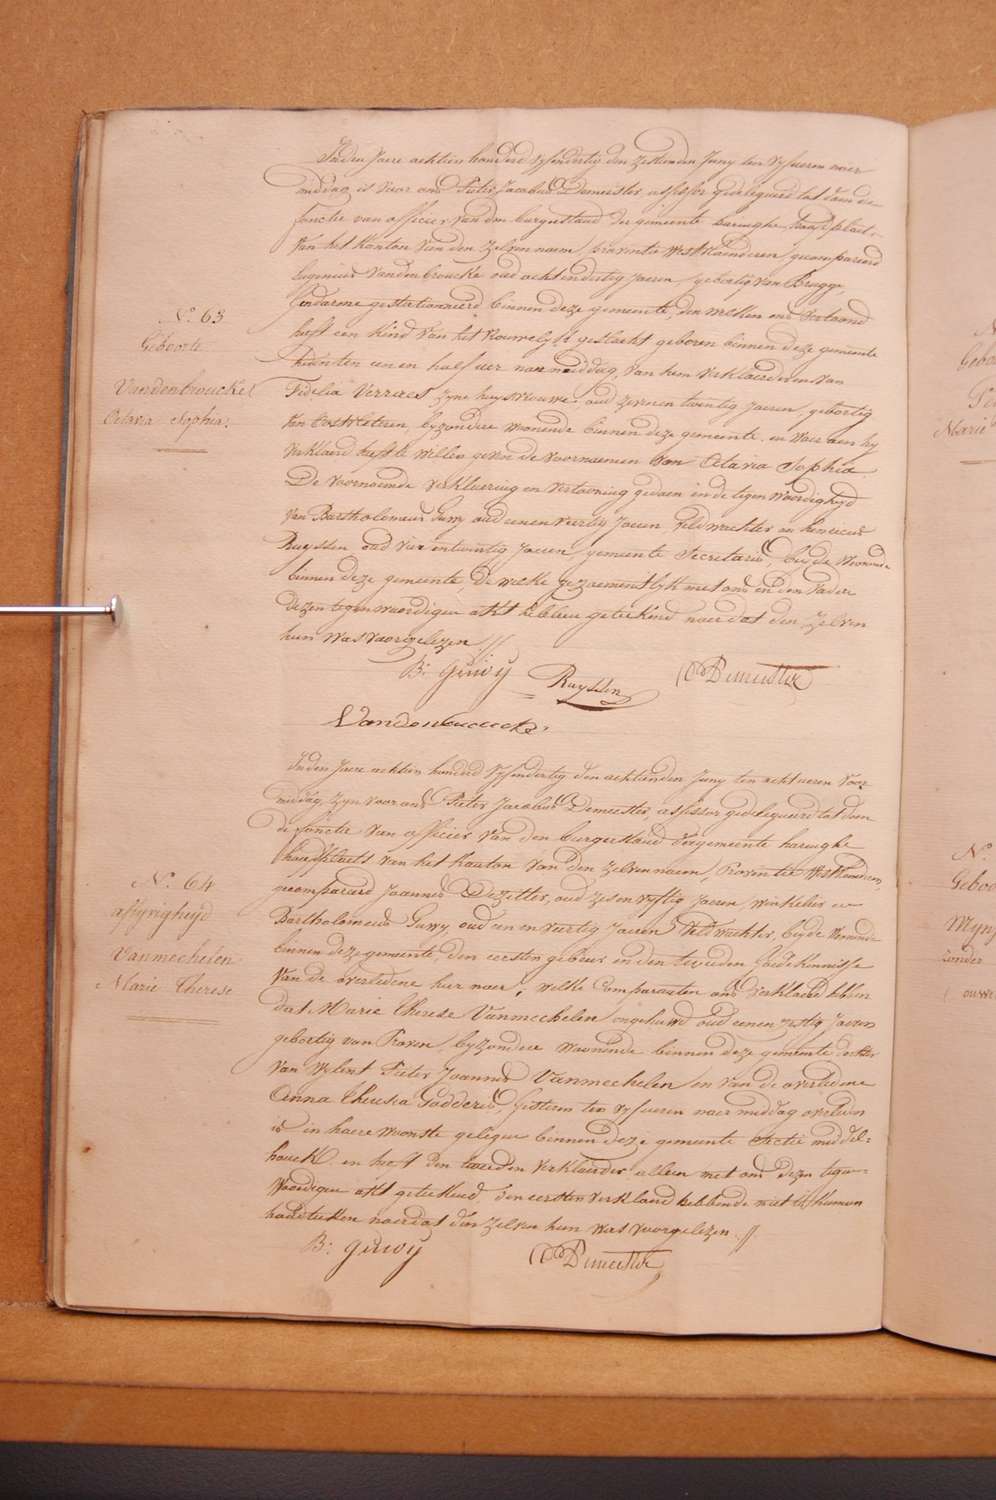 Inden Jaere achtien honderd vyfendertig den zestienden Juny ten vyf ueren naer
middag is voor ons Pieter Jacobus Demeester assessor gedelegueerd tot doen de
fonctie van officier van den burgerstand der gemeente haringhe hoofdplaets
van het Kanton van den zelven naem, Provintie WestVlaenderen, gecompareerd
Eugenius Vandenbroucke oud acht en dertig Jaeren, gebortig van Brugge,
Gendarme gestationneerd binnen deze gemeente, den welken ons vertoond
heeft een kind van het vrouwelyk geslacht geboren binnen deze gemeente
heden ten een en half uer naer middag, van hem verklaerder en van
Fidelia Verrees zyne huysvrouwe oud zeven en twintig Jaeren, gebortig
van Oostvleteren, byzondere woonende binnen deze gemeente en waer aen hy
verklaerd heeft te willen geven de voornaemen van Octavia Sophia.
De voornoemde verklaering en vertooning gedaen in de tegenwoordigheyd
van Bartholomeus Guwy oud eenen veertig Jaeren veldwachter en henricus
Ruyssen oud vier en twintig Jaeren, gemeente Secretaris, beyde woonende
binnen deze gemeente, de welke gezaementlyk met ons en den vader
dezen tegenwoordigen akt hebben geteekend naer dat den zelven
hun was voorgelezen //
N.º 63
Geboorte
Vandenbroucke
Octavia Sophia.
B: guwy Ruyssen Demeester
Vandenbroucke
Inden Jaere achtien honderd vyfendertig den achtienden Juny ten acht ueren voor
middag, zyn voor ons Pieter Jacobus Demeester, assessor gedelegueerd tot doen
de fonctie van officier van den burgerstand der gemeente haringhe
hoofdplaets van het Kanton van den zelven naem, Provintie WestVlaenderen,
gecompareerd Joannes Dezitter, oud zes en vyftig Jaeren, winkelier en
Bartholomeus Guwy oud een en veertig Jaeren veldwachter, beyde woonende
binnen deze gemeente, den eersten gebuer en den tweeden goede kennisse
van de overledene hier naer, welke Comparanten ons verklaerd hebben
dat Marie Therese Vanmechelen ongehuwd oud eenen zestig Jaeren
gebortig van Proven, byzondere woonende binnen deze gemeente dochter
van wylent Pieter Joannes Vanmechelen en van de overledene
Anna Theresia Gadderis, gisteren ten vyf ueren naer middag overleden
is in haere woonste gelegen binnen deze gemeente Sectie middel-
houck en heeft den tweeden verklaerder alleen met ons dezen tegen-
woordigen akt geteekend den eersten verklaerd hebbende niet te kunnen
handteeken naer dat den zelven hun was voorgelezen. //
N.º 64
aflyvigheyd
Vanmechelen
Marie Therese
B: guwy Demeester